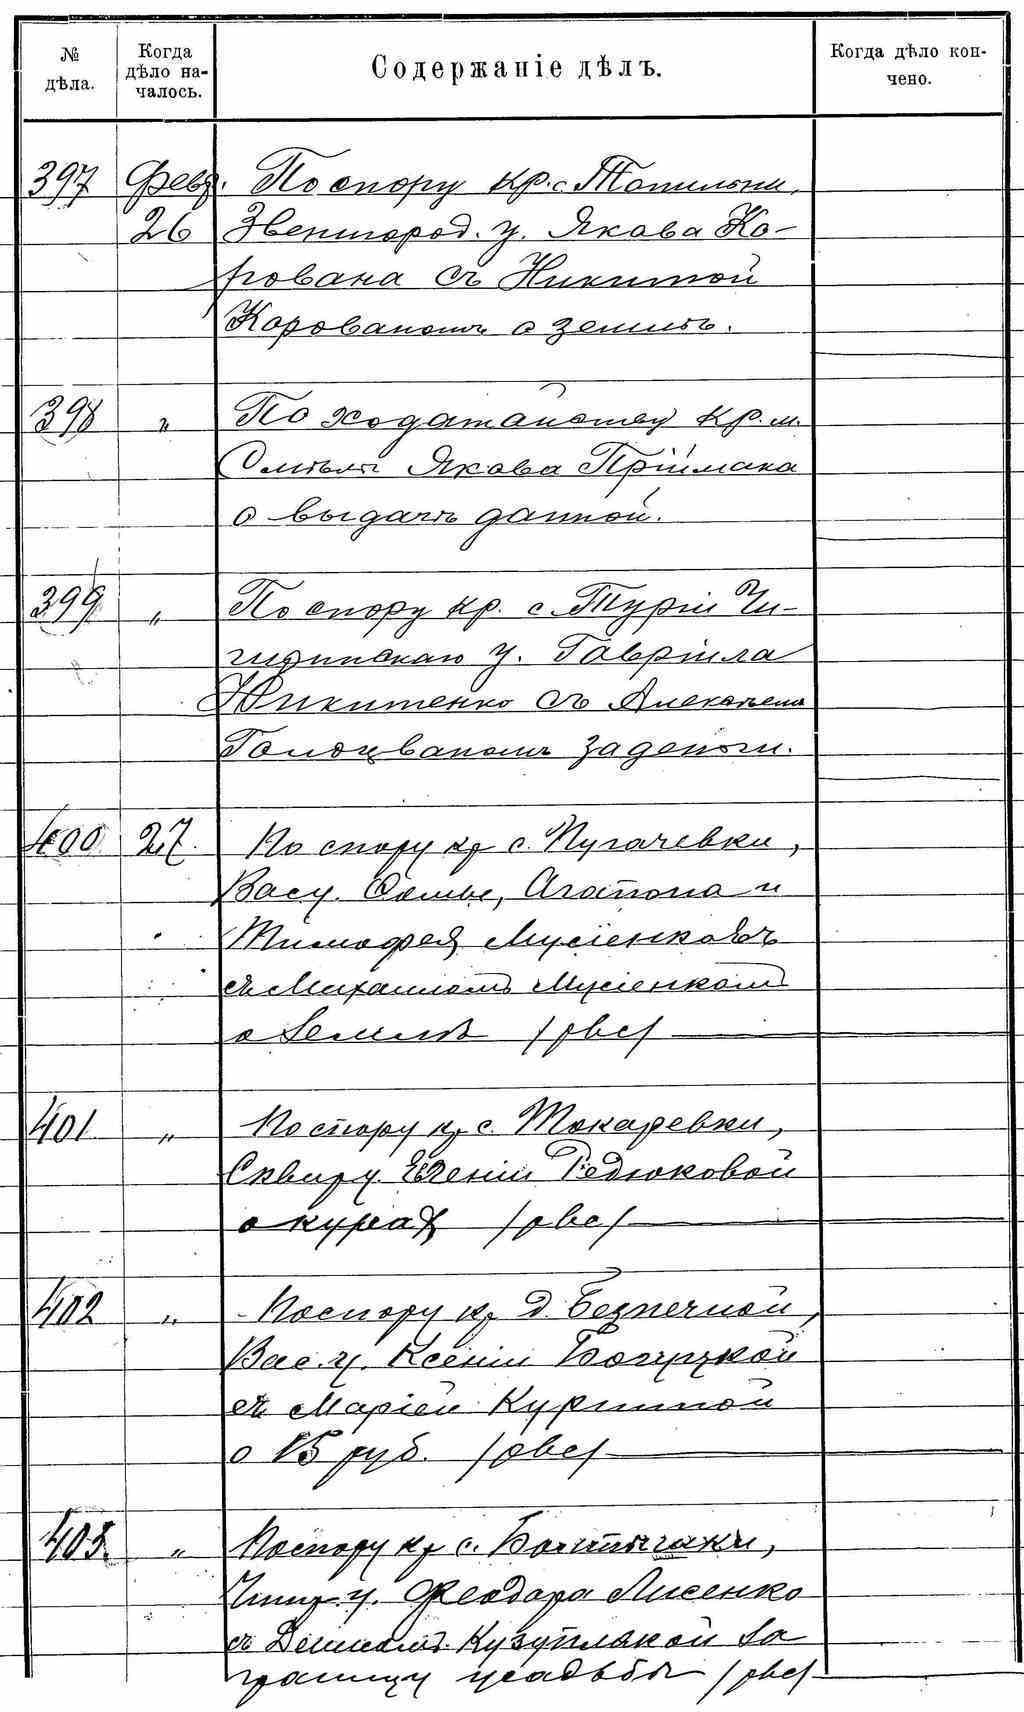 № дѣла.
Когда дѣло началось.
Содержаніе дѣлъ.
Когда дѣло кончено.
397 Февр. По спору кр. с. Топильни,
26 Звенигород. у. Якова Ко-
рована съ Никитой
Корованомъ о землѣ.
398 „ По ходатайству кр. м.
Смѣлы Якова Приймака
о выдачѣ данной.
399 „ По спору кр. с. Туріи Чи-
гиринскаго у. Гавріила
Никитенко съ Алексѣемъ
за деньги.
400 27. По спору кр с. Пугачевки,
Вас у. Агапона и
Тимофея Мусіенковъ
съ Михаиломъ Мусіенкомъ
о землѣ
401 „ По спору кр с. Токаревки,
Сквир у. Редюковой
402 „ По спору кр д. Безпечной,
Вас. у. Ксеніи Богуцкой
съ Маріей
о 15 руб.
403. „ По спору кр с. Болтышки,
Чигир у. Феодора Лисенко
съ за
границу усадьбы